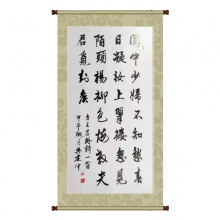 閨中少婦不知愁春
日凝妝上翠樓忽見
陌頭楊柳色悔教夫
婿覓封侯
王昌齡詩一首
甲午